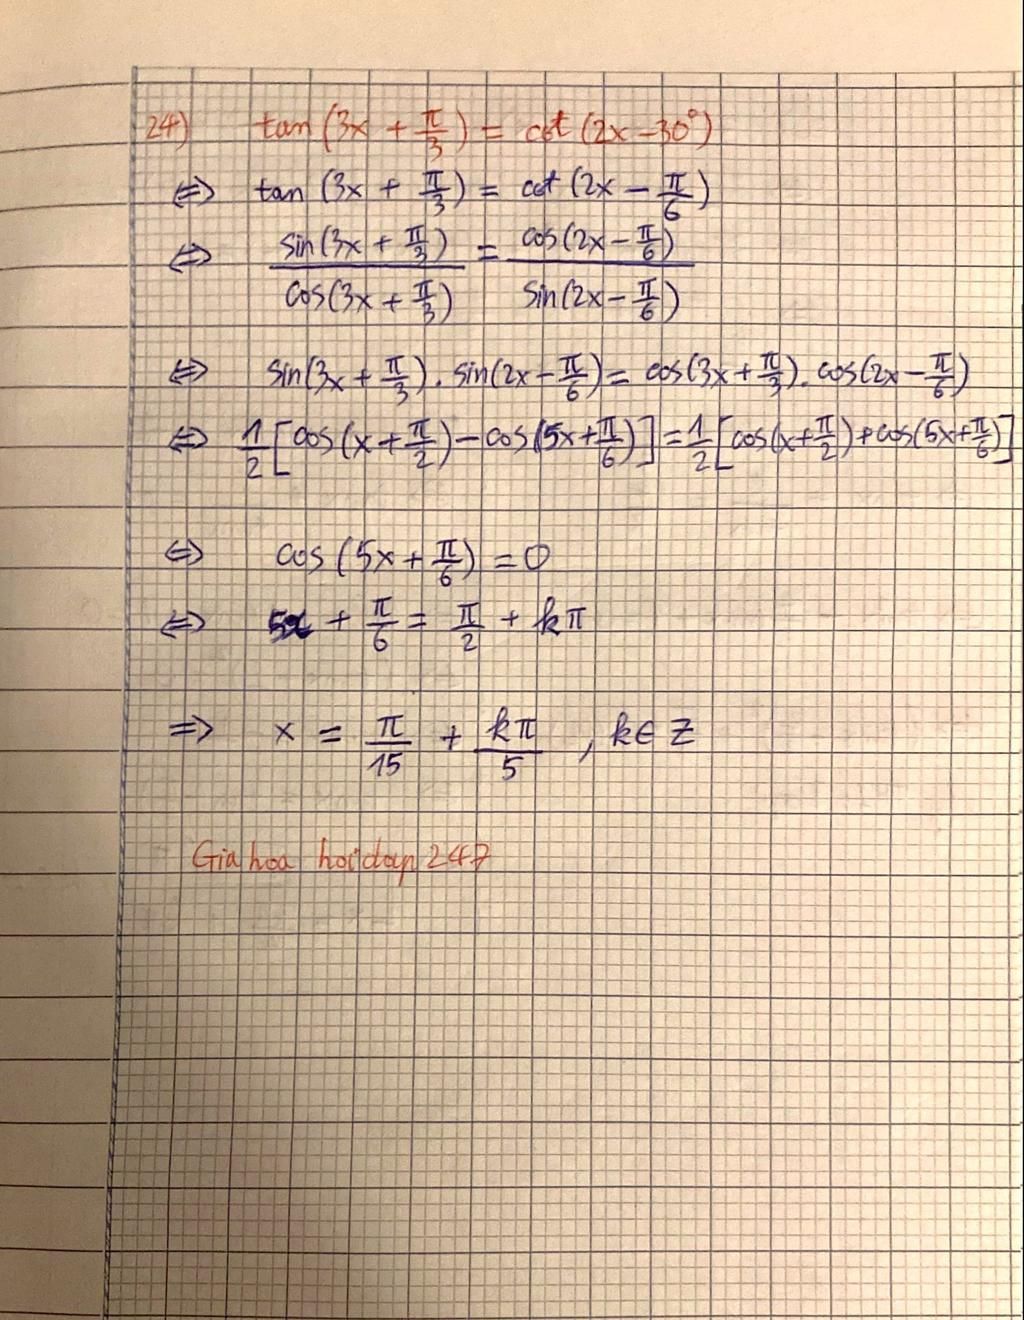 24) tan (3x + π/3) = cot (2x − 30°)
⇔ tan (3x + π/3) = cot (2x − π/6)
⇔ sin(3x + π/3) / cos(3x + π/3) = cos(2x − π/6) / sin(2x − π/6)
⇔ sin(3x + π/3) . sin(2x − π/6) = cos(3x + π/3) . cos(2x − π/6)
⇔ 1/2 [cos(x + π/2) − cos(5x + π/6)] = 1/2 [cos(x + π/2) + cos(5x + π/6)]
⇔ cos (5x + π/6) = 0
⇔ 5x + π/6 = π/2 + kπ
⇒ x = π/15 + kπ/5 , k ∈ Z
Gia hoa hoidap 247